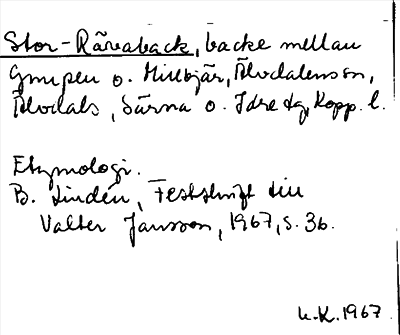 Stor-Rävaback, backe mellan
Gropen o. Millbjär, Älvdalens sn,
Älvdals, Särna o. Idre tg, Kopp. l.
Etymologi.
B. Lindén, Festskrift till
Valter Jansson, 1967, s. 36.
u.K. 1967